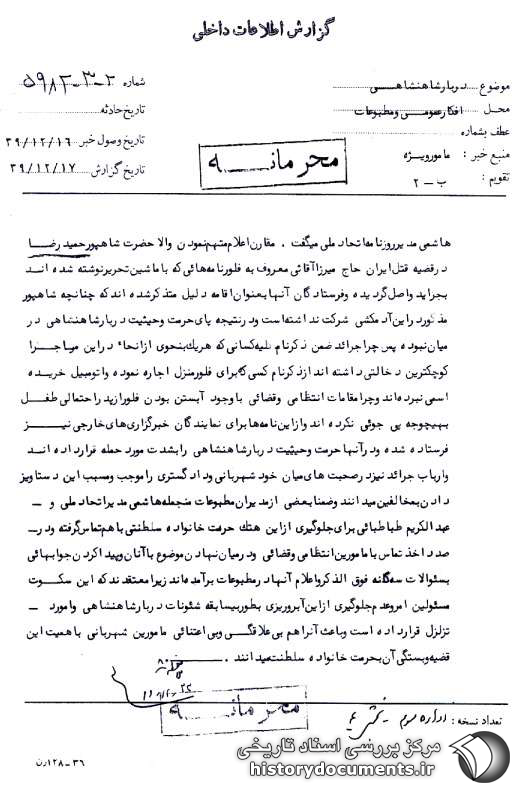 گزارش اطلاعات داخلی
موضوع دربارشاهنشاهــی
شماره ۲-۳-۵۹۸۲
محل افکارعمومــی ومطبوعات
تاریخ حادثه
عطف بشماره
تاریخ وصول خبر ۳۹/۱۲/۱۶
منبع خبر : مامورویژه
محرمانــــه
تاریخ گزارش ۳۹/۱۲/۱۷
تقویم : ب – ۲
هاشمی مدیرروزنامه اتحاد ملی میگفت ، مقارن اعلام متهم نمودن والا حضرت شاهپورحمید رضــا
درقضیه قتل ایران حاج میرزاآقائی معروف به فلورنامه‌هائی که باماشین تحریرنوشته شده انــد
بجراید واصل گردیده وفرستادگان آنهابعنوان اقامه دلیل متذکرشده اند که چنانچه شاهپور
مذکورد راین آدمکشی شرکت نداشته است ودرنتیجه پای حرمت وحیثیت دربارشاهنشاهی در
میان نبوده پس چراجرائد ضمن ذکرنام کلیه کسانی که هریک بنحوی ازانحاء دراین ماجــرا
کوچکترین دخالتی داشته اند ازذکرنام کسی که برای فلورمنزل اجاره نموده واتومبیل خریــده
اسمی نبرده‌اند وچرامقامات انتظامی وقضائی باوجود آبستن بودن فلورازپدراحتمالی طفــل
بهیچوجه پی جوئی نکرده اند وازاین نامه‌هابرای نمایندگان خبرگزاری‌های خارجی نیــز
فرستاده شده ودرآنهاحرمت وحیثیت دربارشاهنشاهی رابشدت مورد حمله قرارداده انــد
وارباب جرائد نیزدرصحبت های میان خود شهربانی ودادگستری راموجب ومسبب این دستاویز
دادن بمخالفین میدانند وضمنابعضی ازمدیران مطبوعات منجمله هاشمی مدیراتحاد ملی و –
عبدالکریم طباطبائی برای جلوگیری ازاین هتک حرمت خانواده سلطنتی باهم تماس گرفته ودر–
صدد اخذ تماس بامامورین انتظامی وقضائی ودرمیان نهادن موضوع باآنان وپیداکردن جوابهائی
بسئوالات سه‌گانه فوق الذکرواعلام آنهادرمطبوعات برآمده‌اند زیرامعتقدند که این سکــوت
مسئولین امروعدم جلوگیری ازاین آبروریزی بطوربیسابقه شئونات دربارشاهنشاهی رامورد –
تزلزل قرارداده است وباعث آنراهم بی‌علاقگــی وبی‌اعتنائی مامورین شهربانی باهمیت این
قضیه وبستگی آن بحرمت خانواده سلطنت میدانند .
محرمانــــه
تعداد نسخه : اداره سوم – بخش ۴
۳۶–۱۲۸رن
مرکز بررسی اسناد تاریخی
historydocuments.ir